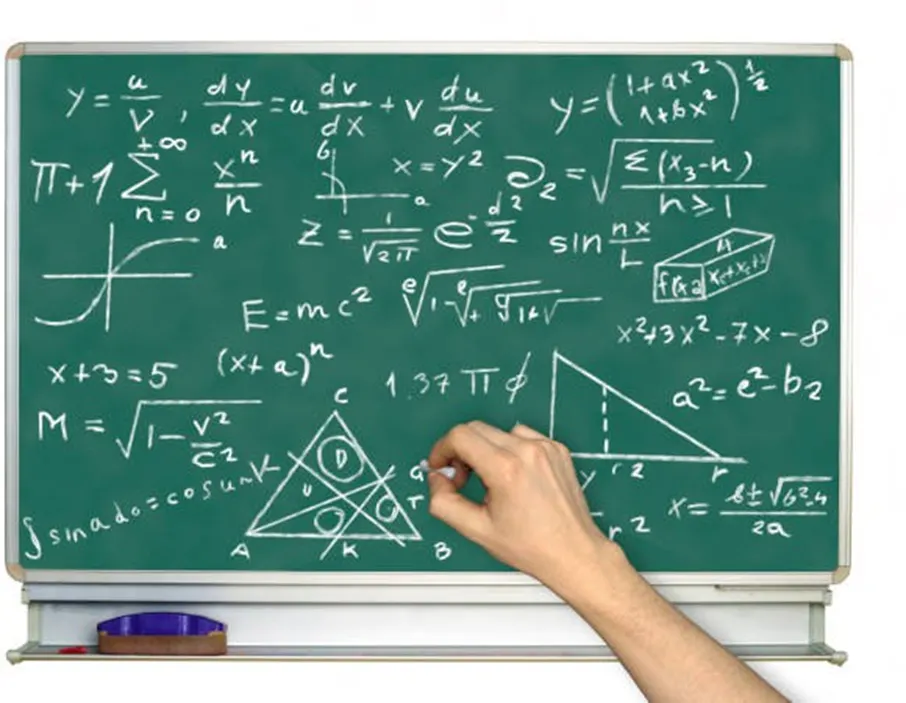 y = u/v, dy/dx = u dv/dx + v du/dx
y = (1+ax²/1+bx²)^1/2
π+1 +∞ Σ n=0 xⁿ/n
b a
x = y²
∂₂ = √Σ(x₃-n)/n≥1
a
z = 1/√2π e^-d²/2
sin nx/L
A
f(x2
E = mc²
e√1-e√+ √1+√
x²+3x²-7x-8
x+3=5
(x+a)ⁿ
1.37 π ϕ
a² = e²-b₂
M = √1-v²/c²
C
D
U
G
T
A K B
y r 2 r
r²
∫sinada=cosun
x = b±√b²-4/2a